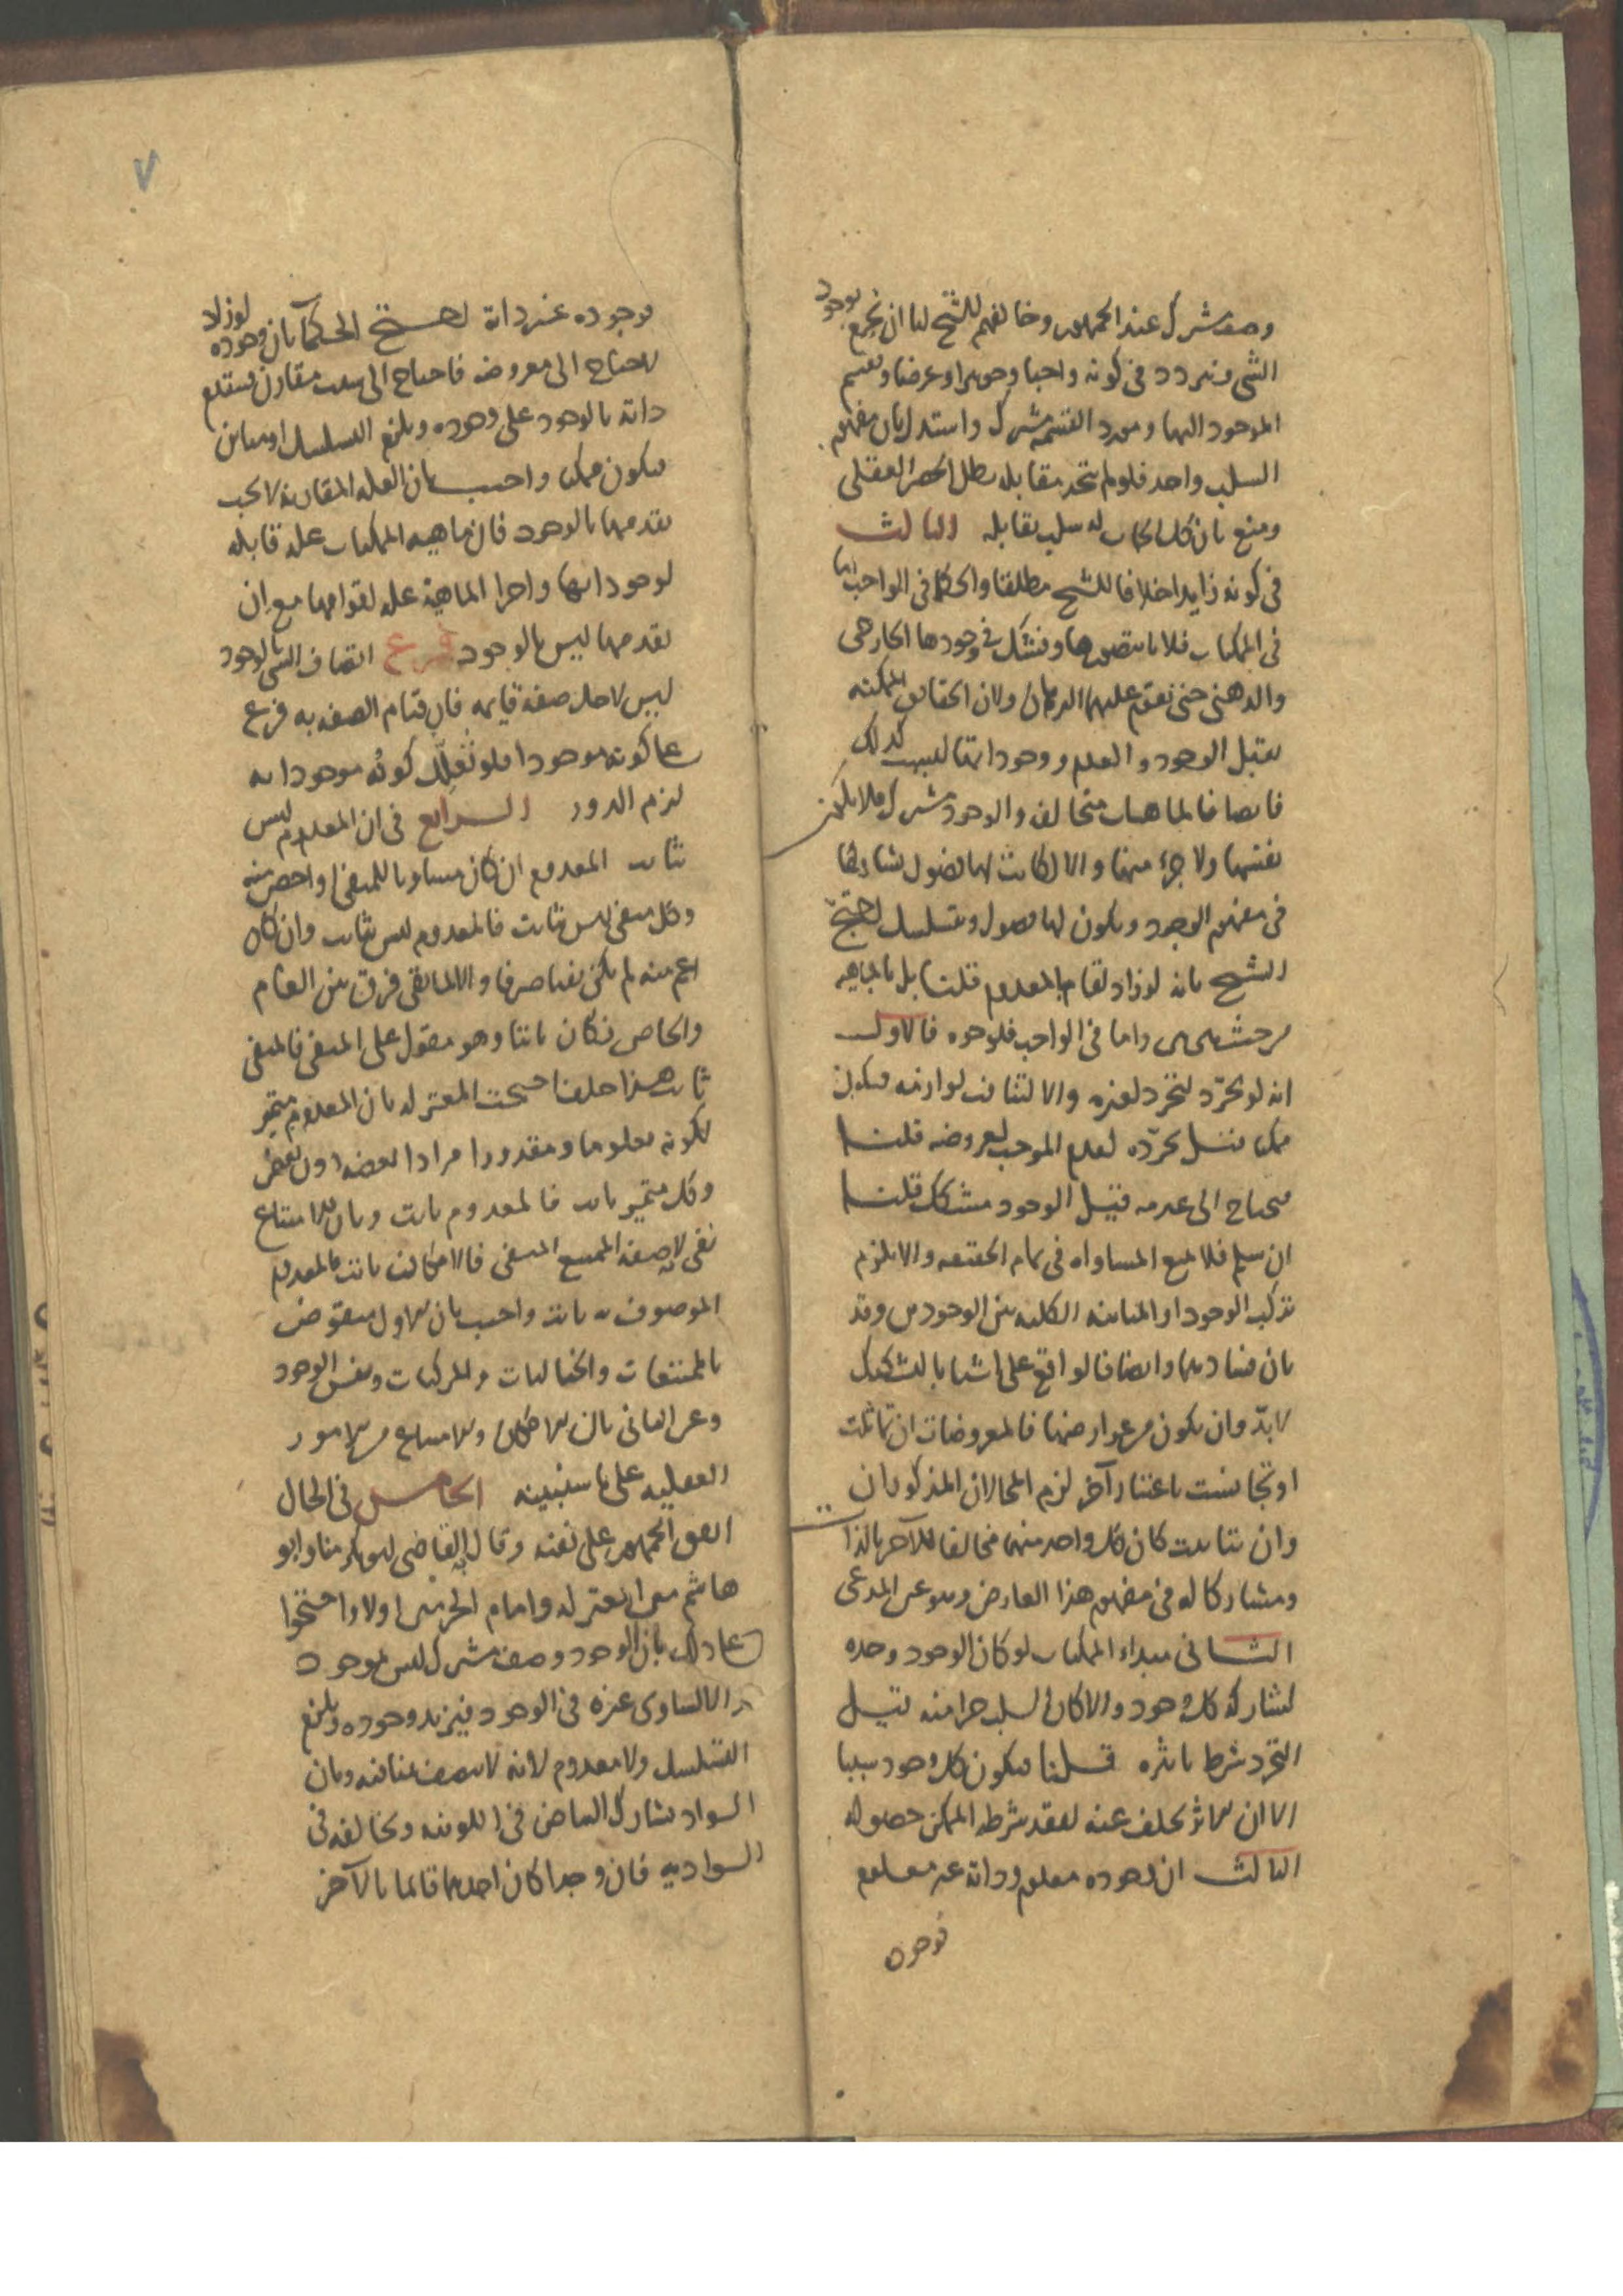 وصف مشترك عند الجمهور وخالفهم الشيخ لنا ان نجزم بوجود
الشى ونتردد فى كونه واجبا وجوهرا وعرضا ونقسم
الموجود اليها ومورد القسمة مشترك واستدل بان مفهوم
السلب واحد فلو لم يتحد مقابله بطل الحصر العقلى
ومنع بان كل ايجاب له سلب يقابله الثالث
فى كونه زايدا خلافا للشيخ مطلقا والحكما فى الواجب اما
فى الممكنات فلانا نتصورها ونشك فى وجودها الخارجى
والذهنى حتى يقوم عليهما البرهان ولان الحقايق الممكنه
تقبل الوجود والعدم ووجوداتها ليست كذلك
فايضا فالماهيات متخالفه والوجود مشترك فلا يكون
نفسها ولا جزء منها والا لكانت لها فصول تشاركها
فى مفهوم الوجود ويكون لها فصول ويتسلسل احتج
الشيخ بانه لو زاد لقام بالمعدوم قلنا بل بالماهيه
من حيث هى هى واما فى الواجب فلوجوه فالاول
انه لو تجرد لتجرد لغيره والا لتنافت لوازمه فيكون
ممكنا قيل تجرده لعدم الموجب لعروضه قلنا
فيحتاج الى عدمه قيل الوجود مشكك قلنا
ان سلم فلا يمنع المساواه فى تمام الحقيقه والا يلزم
تركب الوجود او المباينه الكليه بين الوجودين وقد
بان فسادهما وايضا فالواقع على اشيا بالتشكيك
لا بد وان يكون من عوارضها فالمعروضات ان تماثلت
او تجانست باعتبار آخر لزم المحالان المذكوران
وان تباينت كان كل واحد منهما مخالفا للآخر بالذات
ومشاركا له فى مفهوم هذا العارض وهو عين المدعى
الثانى مبداء الممكنات لو كان الوجود وحده
لشاركه كل وجود والا كان السلب جزا منه قيل
التجرد شرط تاثيره قلنا فيكون كل وجود سببا
الا ان الاثر تخلف عنه لفقد شرطه الممكن حصوله
الثالث ان وجوده معلوم وذاته غير معلوم
فوجوده
٧
فوجوده غير ذاته احتج الحكما بانه لو زاد وجوده
لاحتاج الى معروضه فاحتاج الى سبب مقارن فيتقدم
ذاته بالوجود على وجوده ويلزم التسلسل او مباين
فيكون ممكنا واجيب بان العله المقارنة لا يجب
تقدمها بالوجود فان ماهيه الممكنات علة قابله
لوجوداتها واجزا الماهية علة لقوامها مع ان
تقدمها ليس بالوجود فرع اتصاف الشى بالوجود
ليس لاجل صفة قايمه فان قيام الصفه به فرع
على كونه موجودا فلو تعلل كونه موجودا به
لزم الدور الرابع فى ان المعدوم ليس
بثابت المعدوم ان كان مساويا للمنفى او اخص منه
وكل منفى ليس بثابت فالمعدوم ليس بثابت وان كان
اعم منه لم يكن نفيا صرفا والا لما بقى فرق بين العام
والخاص فكان ثابتا وهو مقول على المنفى فالمنفى
ثابت هذا خلف احتجت المعتزله بان المعدوم متميز
لكونه معلوما ومقدورا مرادا بعضه دون بعض
وكل متميز ثابت فالمعدوم ثابت وبان الامتناع
نفى لانه صفة الممتنع المنفى فالامكان ثابت فالمعدوم
الموصوف به ثابت واجيب بان الاول منقوض
بالممتنعات والخياليات والمركبات ونفس الوجود
وعن الثانى بان الامكان والامتناع من الامور
العقليه على ما سنبينه الخامس فى الحال
اتفق الجمهور على نفيه وقال به القاضى ابو بكر منا وابو
هاشم من المعتزله وامام الحرمين اولا واحتجوا
على ذلك بان الوجود وصف مشترك ليس بموجود
والا لساوى غيره فى الوجود فيزيد وجوده ويلزم
التسلسل ولا معدوم لانه لا يتصف بمنافيه وبان
السواد يشارك البياض فى اللونيه ويخالفه فى
السواديه فان وجدا كان احدهما قائما بالآخر